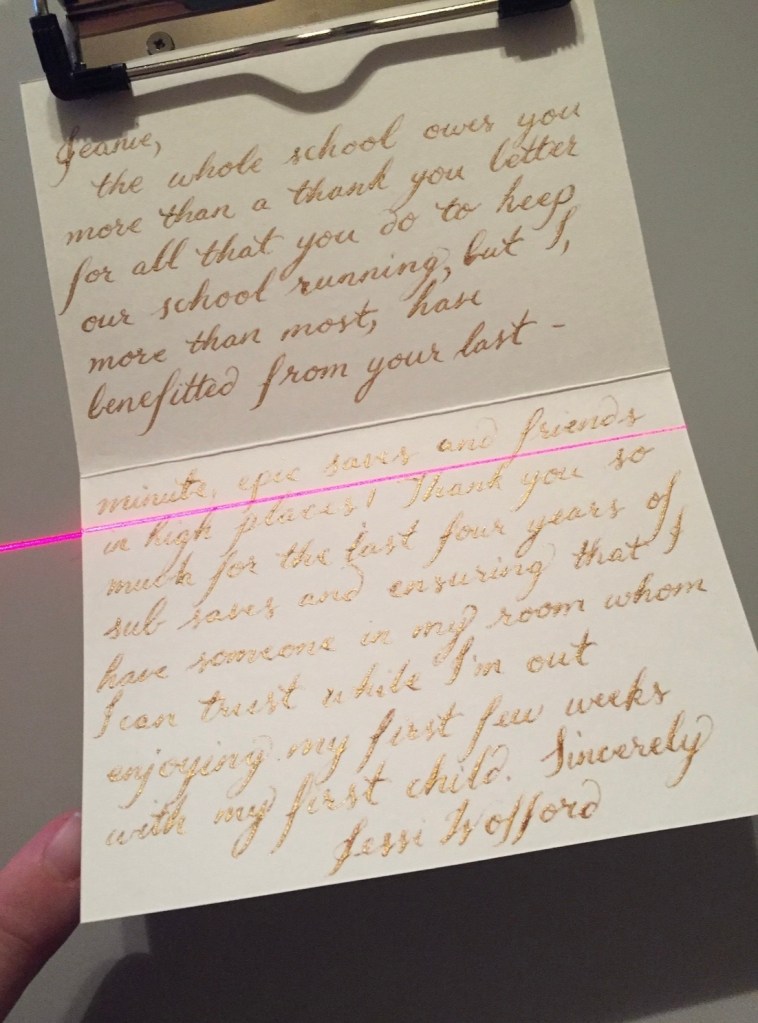 Jeanie,
the whole school owes you
more than a thank you letter
for all that you do to keep
our school running, but I,
more than most, have
benefitted from your last -
minute, epic saves and friends
in high places! Thank you so
much for the last four years of
sub saves and ensuring that I
have someone in my room whom
I can trust while I'm out
enjoying my first few weeks
with my first child. Sincerely
Jessi Wofford